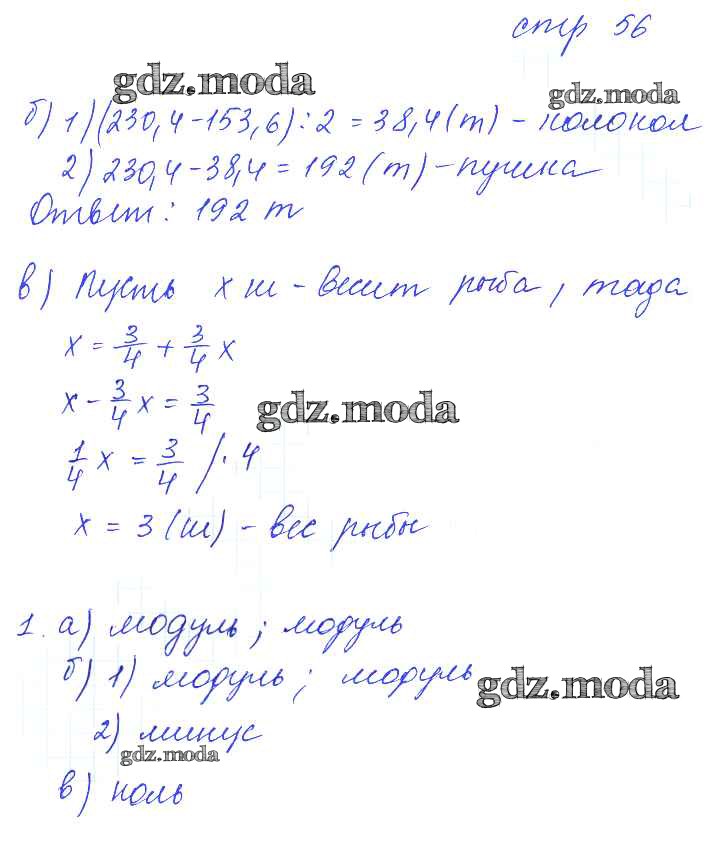 стр 56
gdz.moda
gdz.moda
б) 1) (230,4-153,6):2 = 38,4 (т) - колокол
2) 230,4-38,4 = 192 (т) - пушка
Ответ: 192 т
в) Пусть x ш - весит рыба, тогда
x = 3/4 + 3/4 x
x - 3/4 x = 3/4
gdz.moda
1/4 x = 3/4 /· 4
x = 3 (ш) - вес рыбы
1. а) модуль; модуль
б) 1) модуль; модуль
gdz.moda
2) минус
gdz.moda
в) ноль